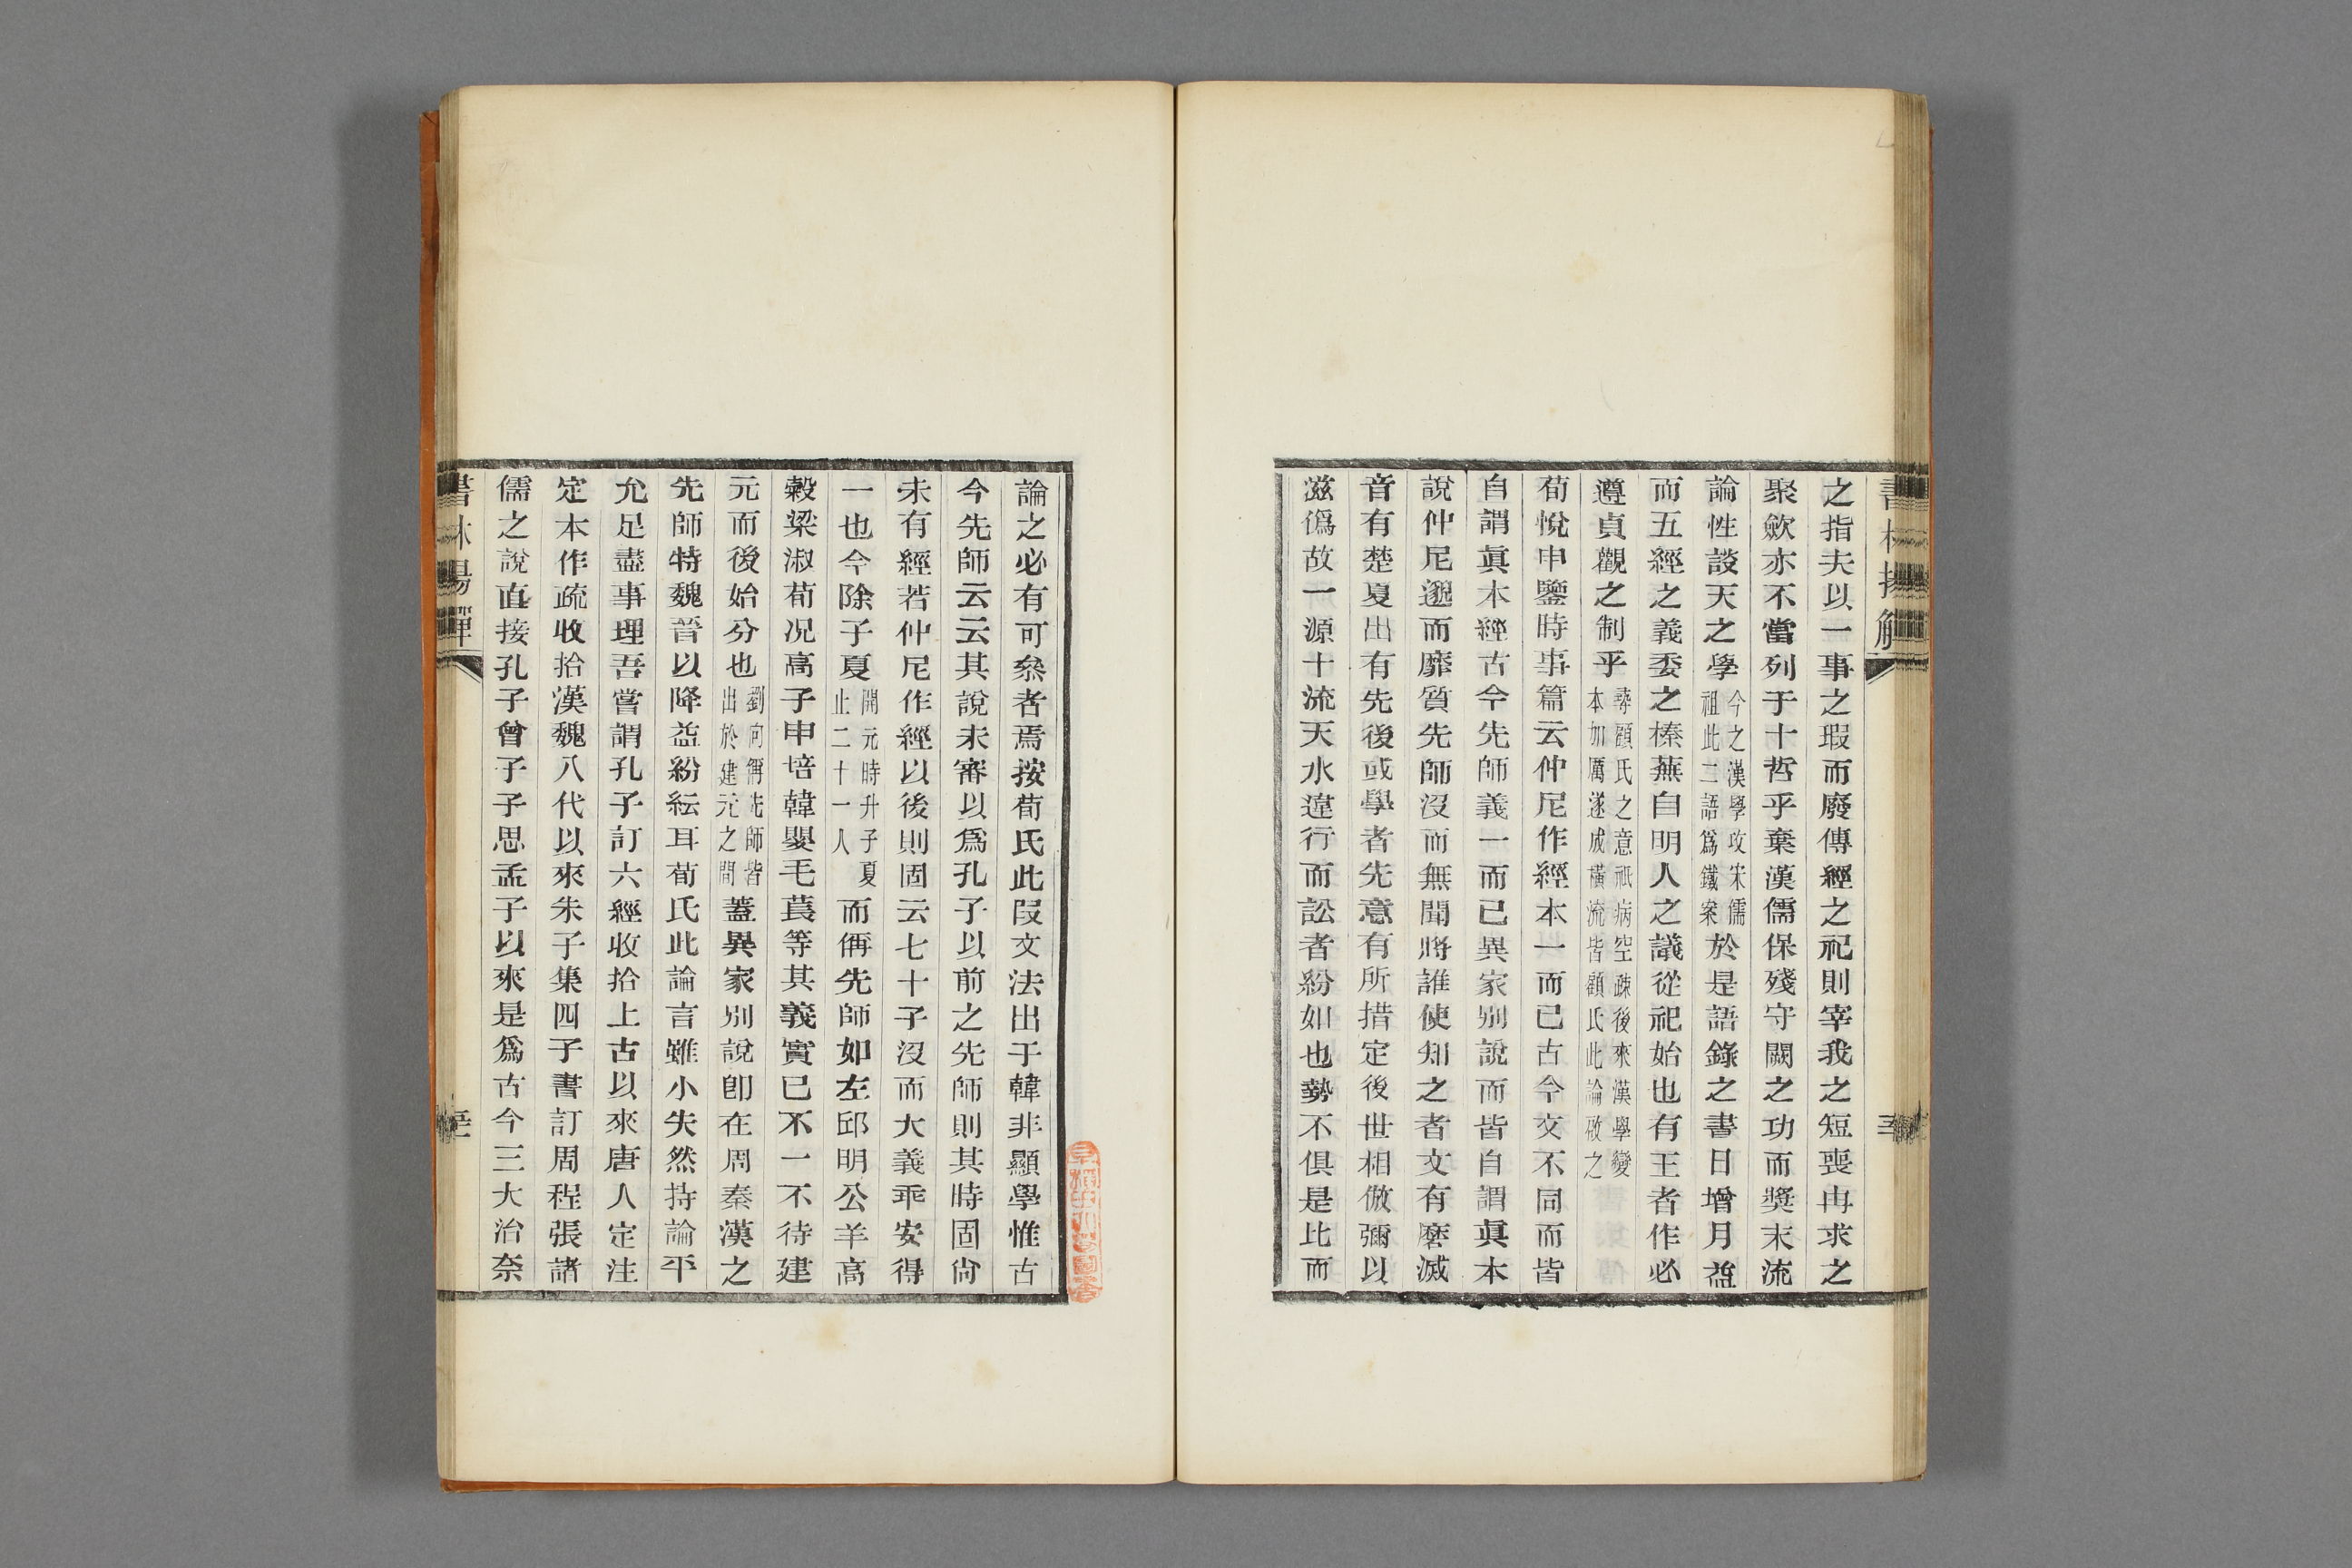 書林揚觶
之指夫以一事之瑕而廢傳經之祀則宰我之短喪冉求之
聚歛亦不當列于十哲乎棄漢儒保殘守闕之功而奬末流
論性談天之學今之漢學攻宋儒祖此二語爲鐵案於是語錄之書日增月益
而五經之義委之榛蕪自明人之議從祀始也有王者作必
遵貞觀之制乎尋顧氏之意祇病空疎後來漢學變本加厲遂成橫流皆顧氏此論啟之
荀悅申鑒時事篇云仲尼作經本一而已古今文不同而皆
自謂眞本經古今先師義一而已異家別說而皆自謂眞本
說仲尼邈而靡質先師沒而無聞將誰使知之者文有磨滅
音有楚夏出有先後或學者先意有所措定後世相倣彌以
滋僞故一源十流天水違行而訟者紛如也勢不俱是比而
論之必有可叅者焉按荀氏此段文法出于韓非顯學惟古
今先師云云其說未審以爲孔子以前之先師則其時固尙
未有經若仲尼作經以後則固云七十子沒而大義乖安得
一也今除子夏開元時升子夏止二十一人而偁先師如左邱明公羊高
穀梁淑荀況高子申培韓嬰毛萇等其義實已不一不待建
元而後始分也劉向偁先師皆出於建元之間蓋異家別說卽在周秦漢之
先師特魏晉以降益紛紜耳荀氏此論言雖小失然持論平
允足盡事理吾嘗謂孔子訂六經收拾上古以來唐人定注
定本作疏收拾漢魏八代以來朱子集四子書訂周程張諸
儒之說直接孔子曾子子思孟子以來是爲古今三大治奈
書林揚觶